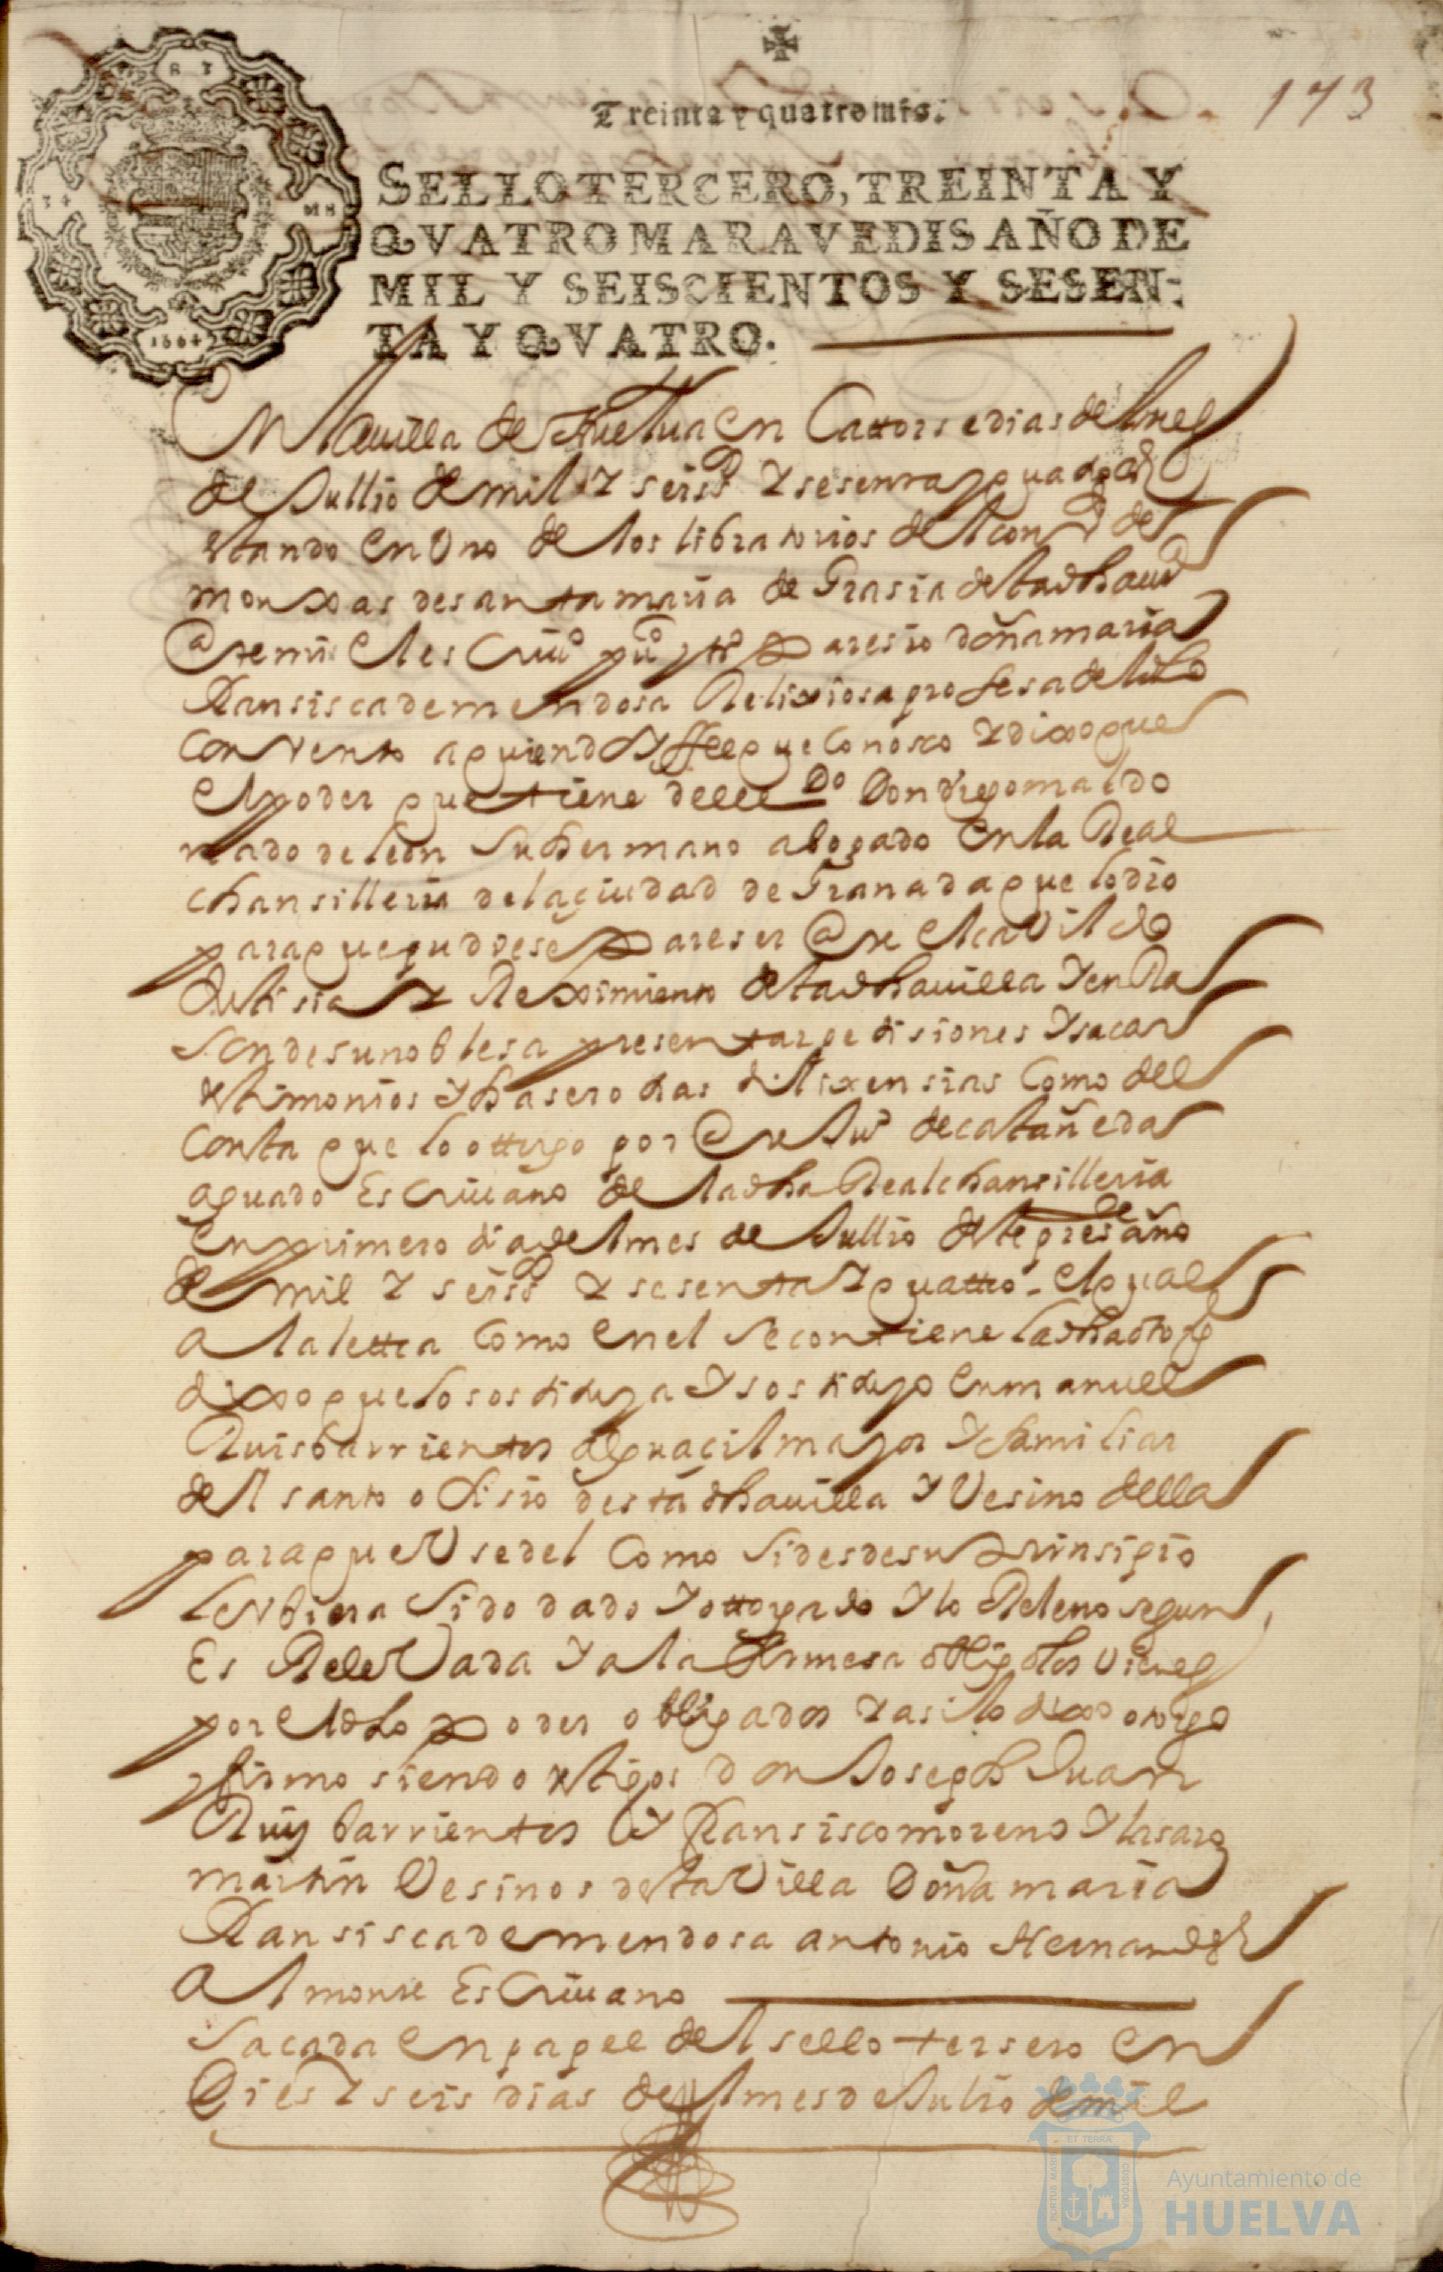 173
Treinta y quatro mrs.
SELLO TERCERO, TREINTA Y
QVATRO MARAVEDIS AÑO DE
MIL Y SEISCIENTOS Y SESEN-
TA Y QVATRO.
1664
En la uilla de Huelua en Cattorse dias del mes
de Jullio de mil y seisos y sesenta y quatro
estando en Uno de los libratorios del conto de
monxas de santa maria de Grasia desta dha uilla
ante mi el escriuo puco y tos paresio doña maria
fransisca de mendosa Relixiosa profesa del dho
convento a quien doy ffee que Conosco y dixo que
El poder que tiene del Ldo Don diego maldo
nado de león su hermano abogado En la Real
chansilleria de la ciudad de Granada que le dio
para que pudiese pareser ante el cavildo
Justisia y Reximiento desta dha uilla y en Ra
son de su noblesa presentar petisiones y sacar
testimonios y haser otras dilixensias Como del
Consta que lo ottorgo por ante Juo de castañeda
aguado Escriuano de la dha Real chansilleria
En primero dia del mes de Jullio deste presete año
de mil y seisos y sesenta y quattro - el qual
a la lettra Como en el se contiene la dha
dixo que lo sostituya y sostituyo En manuel
Ruis barrientos alguacil mayor y familiar
del santo ofisio desta dha uilla y Vesino della
para que Use del Como si desde su prinsipio
le vbiera sido dado y ottorgado y lo Releno segun
Es Relevada y a la firmesa obligo los vienes
por el dho poder obligados y asi lo dixo otorgo
y firmo siendo testigos don Joseph Juan
Ruiz barrientos y fransisco moreno y lasaro
martin Vesinos desta Villa Doña maria
fransisca de mendosa antonio Hernandez
Almonte Escriuano
Sacada en papel del sello tersero en
Dies y seis dias del mes de Julio de mil
PORTUS MARIS
ET TERRÆ
CUSTODIA
Ayuntamiento de
HUELVA